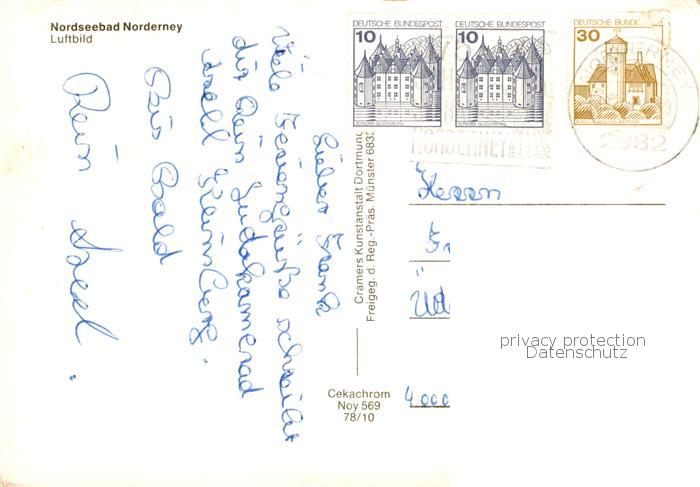 Nordseebad Norderney
Luftbild
DEUTSCHE BUNDESPOST
10
SCHLOSS GLÜCKSBURG
DEUTSCHE BUNDESPOST
10
SCHLOSS GLÜCKSBURG
DEUTSCHE BUNDE
30
NORDERNEY
2982
NORDERNEY
Lieber Frank
Viele Feriengrüße schreibt
dir dein Judokamerad
Axel
Bis Bald
Dein Axel.
Cramers Kunstanstalt Dortmund
Freigeg. d. Reg.-Präs. Münster 6832
Cekachrom
Noy 569
78/10
Herrn
4000
privacy protection
Datenschutz